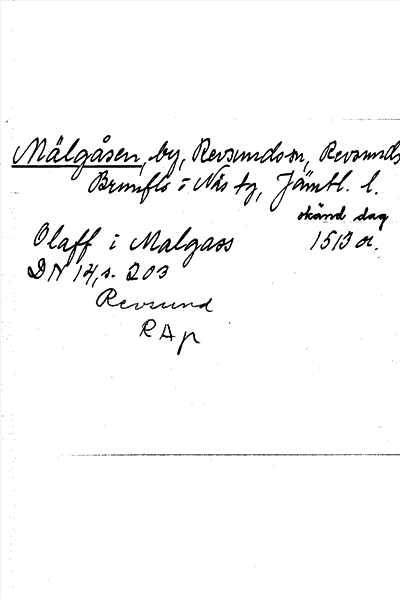 Mälgåsen, by, Revsunds sn, Revsunds
Brunflo o Näs tg, Jämtl. l.
okänd dag
Olaff i Malgass 1513 or.
DN 14, s. 203
Revsund
RAp